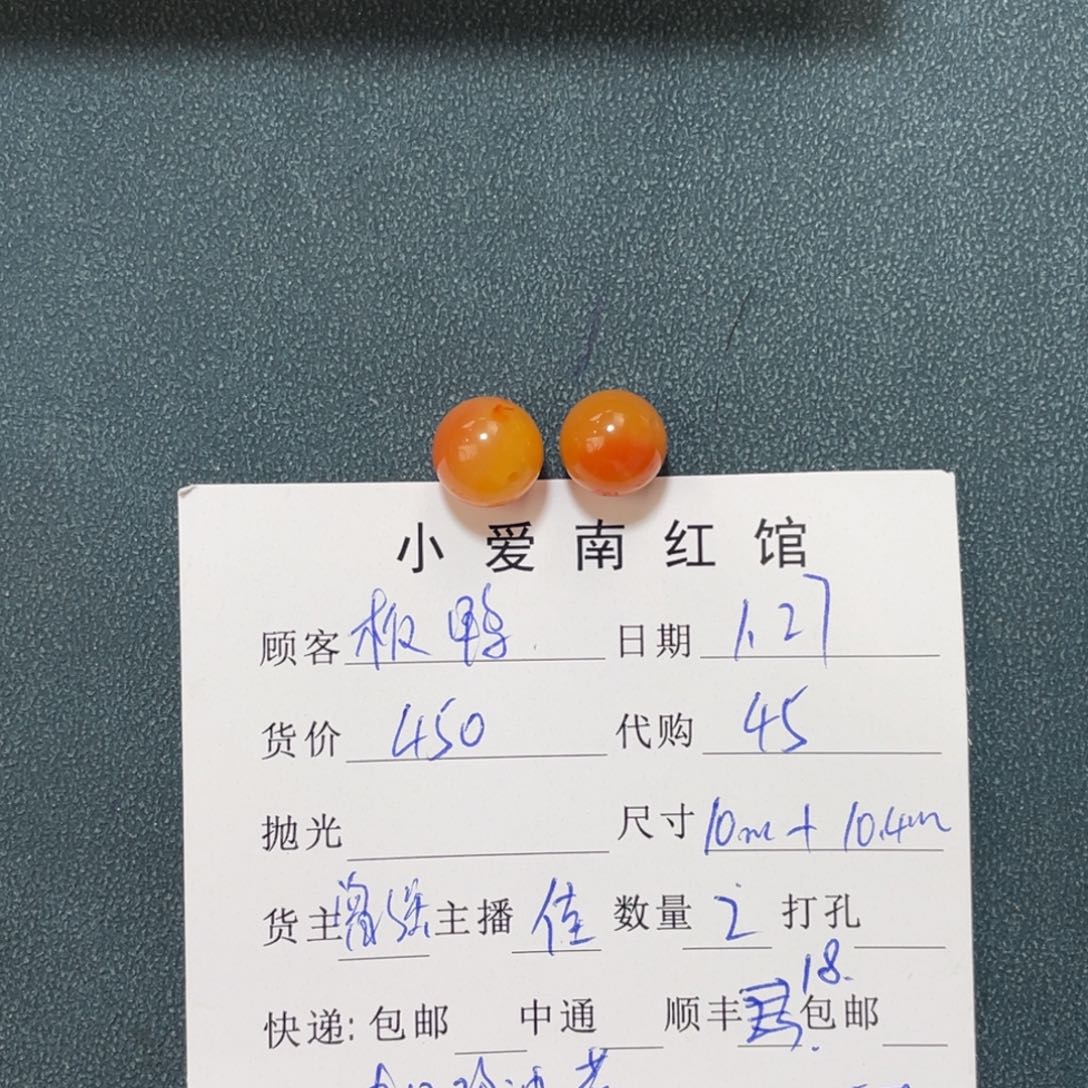 小爱南红馆
顾客 板鸭 日期 1.27
货价 450 代购 45
抛光 尺寸 10m + 10.4m
货主 主播 佳 数量 2 打孔
18.
快递: 包邮 中通 顺丰 包邮